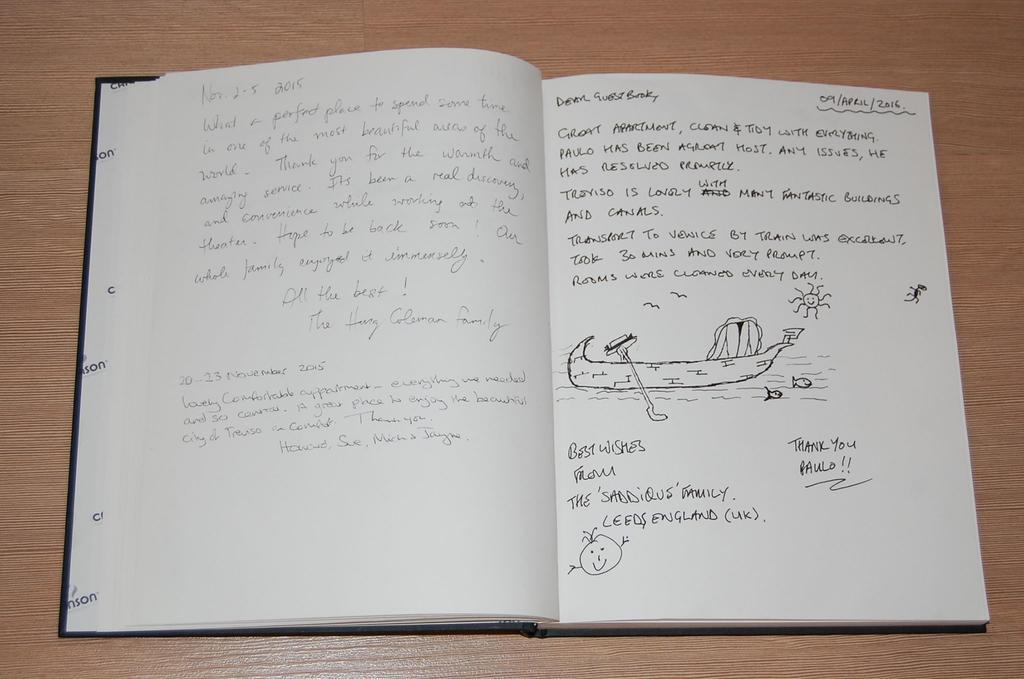 Nov. 2-5 2015
What a perfect place to spend some time
in one of the most beautiful areas of the
world. Thank you for the warmth and
amazing service. Its been a real discovery,
and convenience while working at the
theater. Hope to be back soon! Our
whole family enjoyed it immensely.
All the best!
The Coleman family
20-23 November 2015
Lovely Comfortable appartment - everything we needed
and so central. A great place to enjoy the beautiful
city of Treviso in comfort. Thank you.
Howard, Sue, Jayne.
DEAR GUESTBOOK,
09/APRIL/2016.
GREAT APARTMENT, CLEAN & TIDY WITH EVERYTHING.
PAULO HAS BEEN A GREAT HOST. ANY ISSUES, HE
HAS RESOLVED PROMPTLY.
TREVISO IS LOVELY WITH MANY FANTASTIC BUILDINGS
AND CANALS.
TRANSPORT TO VENICE BY TRAIN WAS EXCELLENT.
TOOK 30 MINS AND VERY PROMPT.
ROOMS WERE CLEANED EVERY DAY.
BEST WISHES
FROM
THE 'SADDIQUS' FAMILY.
LEEDS, ENGLAND (UK).
THANK YOU
PAULO!!